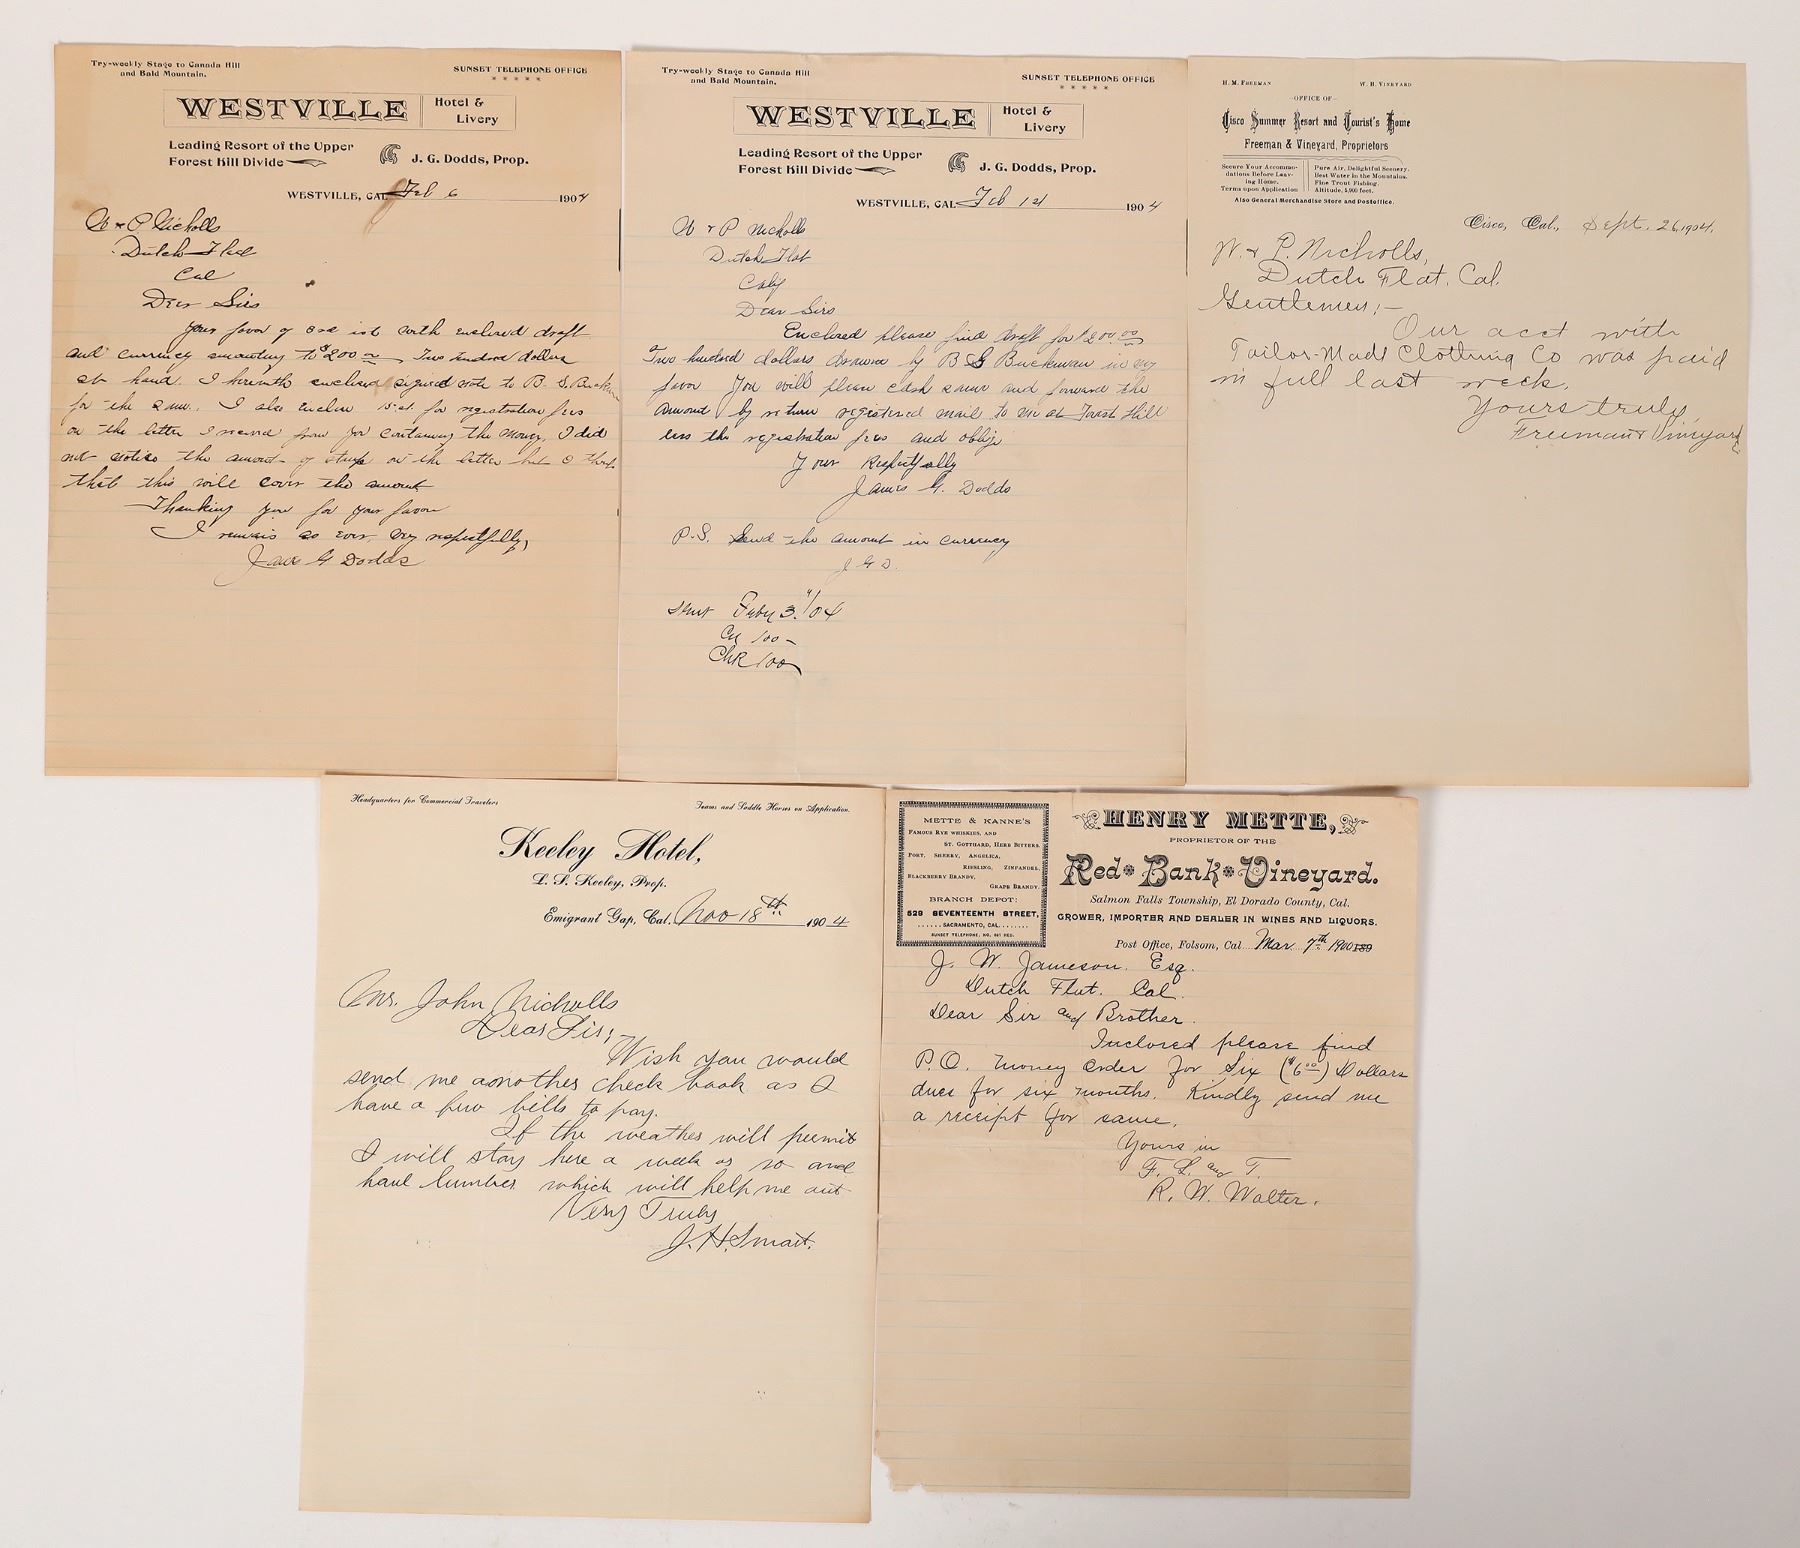 Try-weekly Stage to Canada Hill
and Bald Mountain.
SUNSET TELEPHONE OFFICE
*****
WESTVILLE
Hotel &
Livery
Leading Resort of the Upper
Forest Hill Divide
J. G. Dodds, Prop.
WESTVILLE, CAL. Feb 6 1904
W & P Nicholls
Dutch Flat
Cal
Dear Sirs
Your favor of inst with enclosed draft
and currency amounting to $200 00 Two hundred dollars
at hand. I herewith enclose signed note to B. S.
for the same. I also enclose for registration fees
on the letter I received from you containing the money, I did
not notice the amount of stamps on the letter but I think
that this will cover the amount
Thanking you for your favor
I remain as ever very respectfully,
James G Dodds
Try-weekly Stage to Canada Hill
and Bald Mountain.
SUNSET TELEPHONE OFFICE
*****
WESTVILLE
Hotel &
Livery
Leading Resort of the Upper
Forest Hill Divide
J. G. Dodds, Prop.
WESTVILLE, CAL. Feb 1904
W & P Nicholls
Dutch Flat
Calif
Dear Sirs
Enclosed please find draft for $200.00
Two hundred dollars drawn by B S Buckman in my
favor You will please cash same and forward the
amount by return registered mail to me at Forest Hill
less the registration fees and oblige
Your Respectfully
James G. Dodds
P.S. Send the amount in currency
J G D.
sent Feby 3"/04
Cu 100 -
Chk 100
H. M. FREEMAN
W. B. VINEYARD
-OFFICE OF-
Cisco Summer Resort and Tourist's Home
Freeman & Vineyard, Proprietors
Secure Your Accommo-
dations Before Leav-
ing Home.
Terms upon Application
Pure Air, Delightful Scenery.
Best Water in the Mountains.
Fine Trout Fishing.
Altitude, 5,900 feet.
Also General Merchandise Store and Postoffice.
Cisco, Cal., Sept. 26, 1904.
W. & P. Nicholls,
Dutch Flat, Cal.
Gentlemen;-
Our acct with
Tailor-Made Clothing Co was paid
in full last week.
Yours truly,
Freeman & Vineyard
Headquarters for Commercial Travelers
Teams and Saddle Horses on Application.
Keeley Hotel,
L. F. Keeley, Prop.
Emigrant Gap, Cal. Nov 18th 1904
Mr. John Nicholls
Dear Sir;-
Wish you would
send me aonother check book as I
have a few bills to pay.
If the weather will permit
I will stay here a week or so and
haul lumber which will help me out
Very Truly
J. H. Smart.
METTE & KANNE'S
FAMOUS RYE WHISKIES, AND
ST. GOTTHARD, HERB BITTERS.
PORT, SHERRY, ANGELICA,
RIESLING, ZINFANDEL,
BLACKBERRY BRANDY,
GRAPE BRANDY.
BRANCH DEPOT:
528 SEVENTEENTH STREET,
......SACRAMENTO, CAL........
SUNSET TELEPHONE, NO. 881 RED.
HENRY METTE,
PROPRIETOR OF THE
Red*Bank*Vineyard.
Salmon Falls Township, El Dorado County, Cal.
GROWER, IMPORTER AND DEALER IN WINES AND LIQUORS.
Post Office, Folsom, Cal. Mar. 7th 1900 189
J. W. Jameson. Esq.
Dutch Flat. Cal.
Dear Sir and Brother.
Inclosed please find
P.O. money order for Six ($6.00) Dollars
dues for six months. Kindly send me
a receipt for same.
Yours in
F. L. and T.
R. W. Walter.